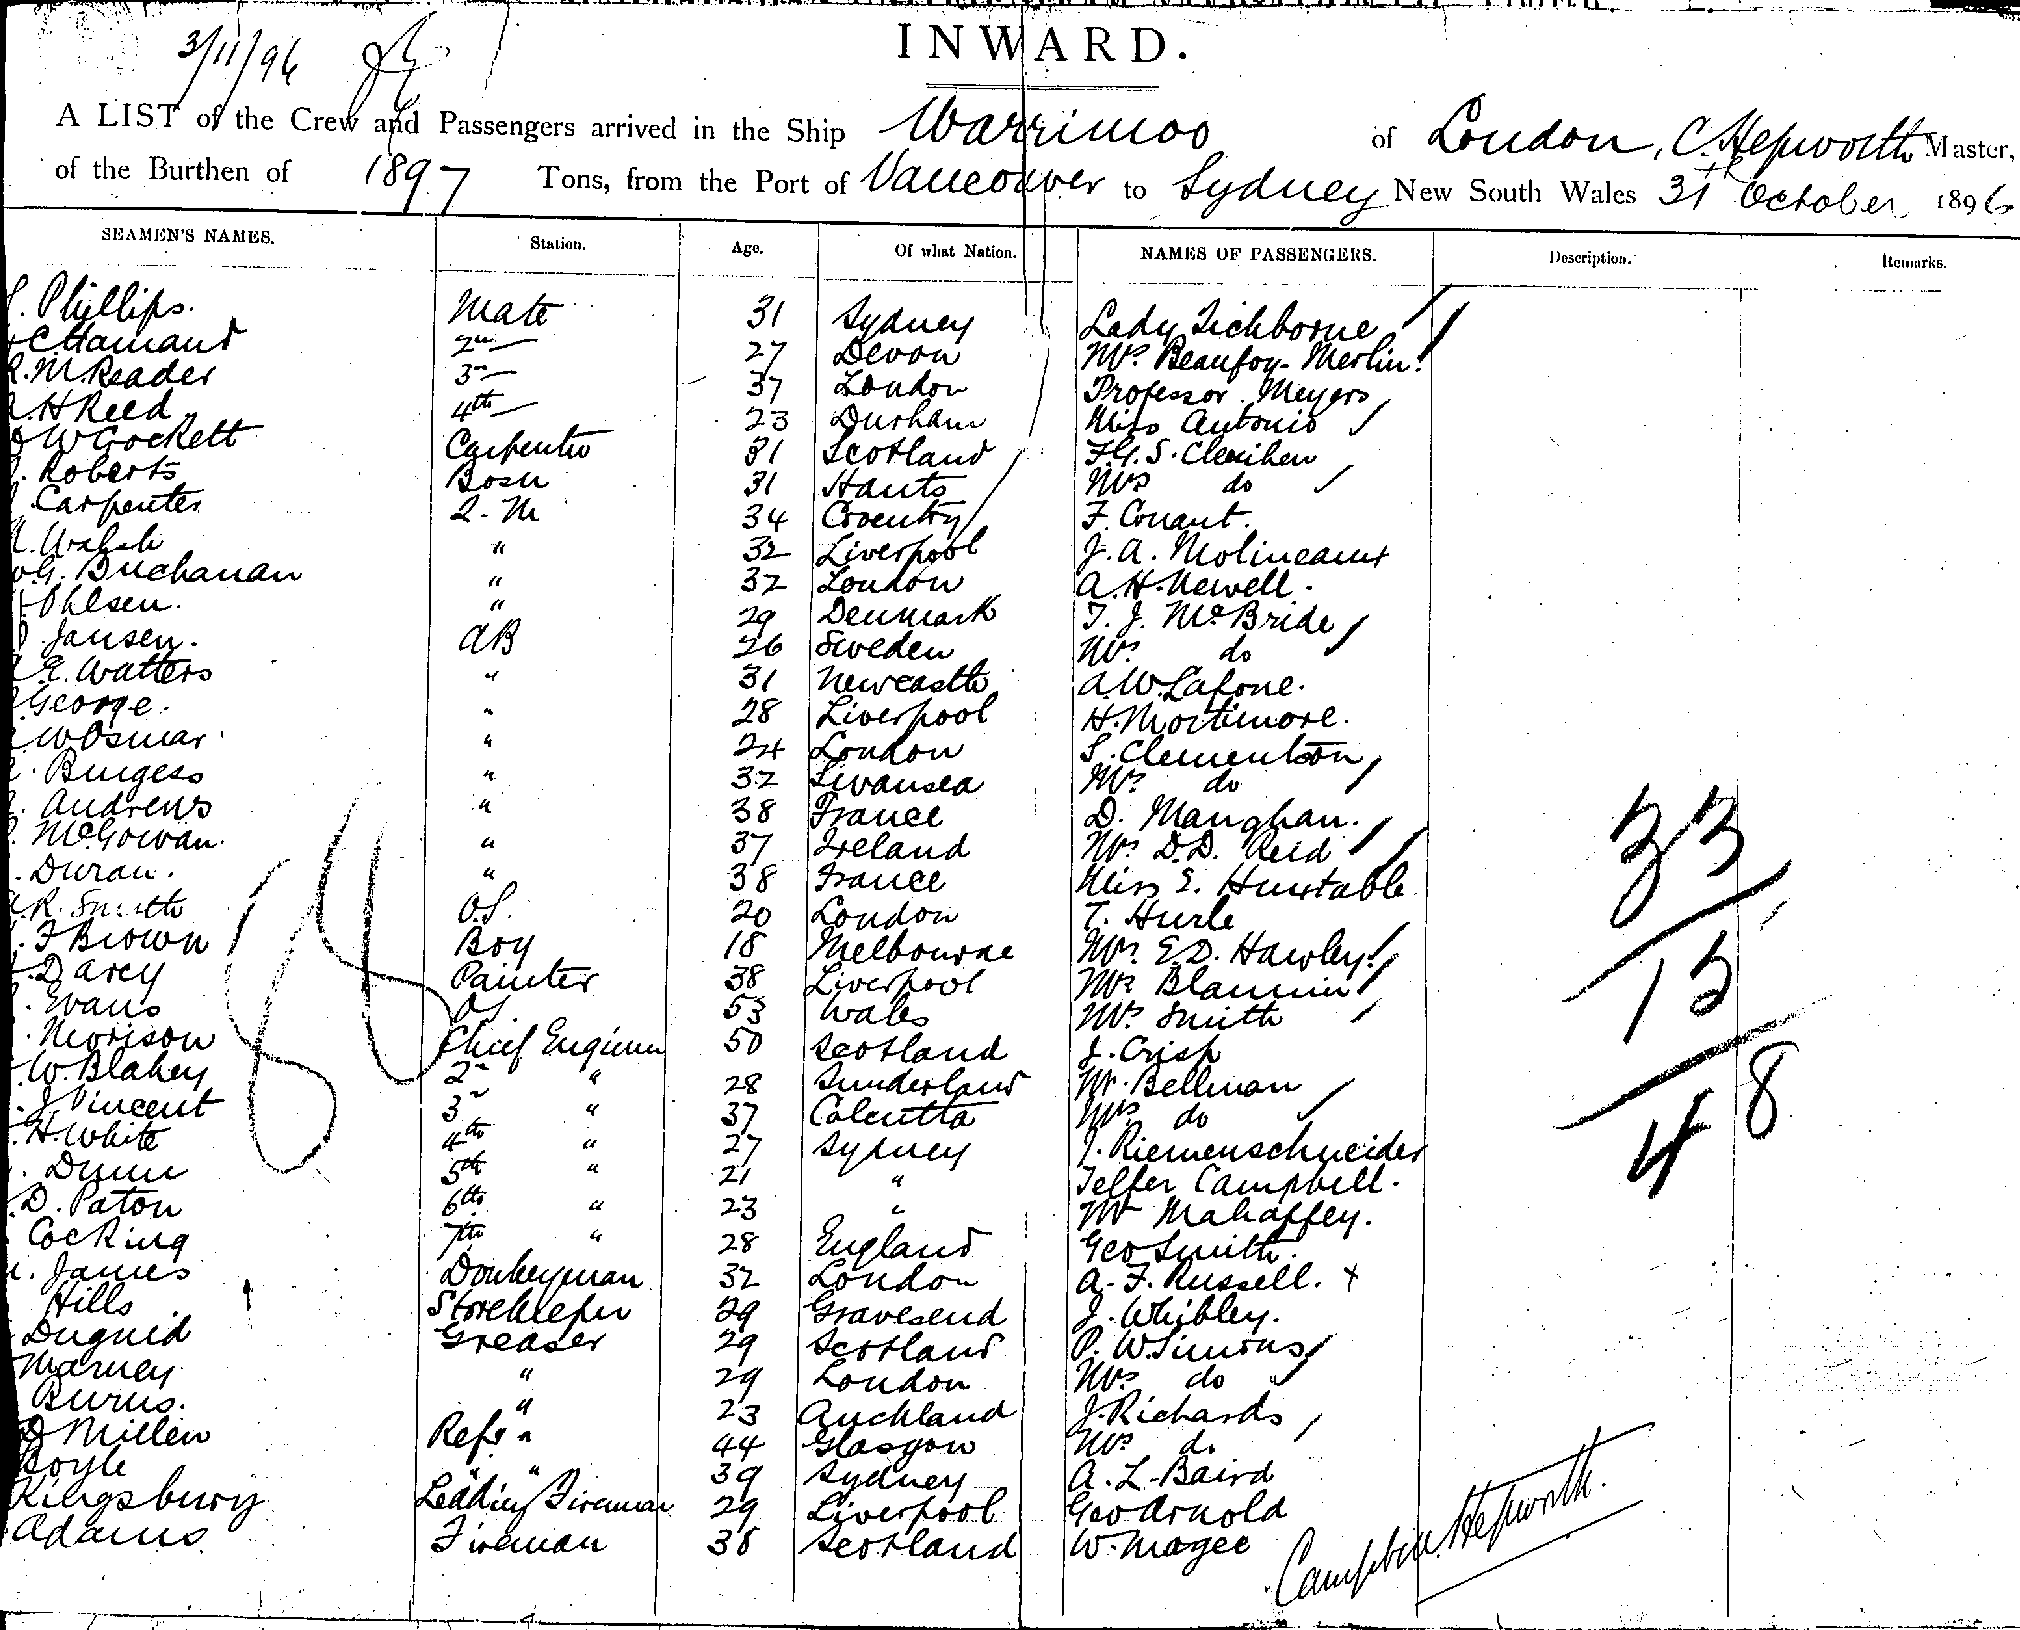 3/11/96
INWARD.
A LIST of the Crew and Passengers arrived in the Ship Warrimoo of London, C. Hepworth Master,
of the Burthen of 1897 Tons, from the Port of Vancouver to Sydney New South Wales 31st October 1896
SEAMEN'S NAMES. Station. Age. Of what Nation. NAMES OF PASSENGERS. Description. Remarks.
Phillips. Mate 31 Sydney Lady Tichborne
C Hamand 2nd 27 Devon Mrs. Beaufoy-Merlin
M. Reader 3rd 37 London Professor Meyers
H Reed 4th 23 Durham Miss Antonio
W Crockett Carpenter 31 Scotland F.G.S. Clerihew
Roberts Bosn 31 Hants Mrs do
Carpenter Q.M 34 Coventry F. Conant.
Walsh " 32 Liverpool J. A. Molineaux
G. Buchanan " 32 London A. H. Newell.
Ohlsen. " 29 Denmark T. J. McBride
Jansen. AB 26 Sweden Mrs. do
E. Watters " 31 Newcastle A. W. Lafone.
George. " 28 Liverpool H. Mortimore.
W Osmar " 24 London S. Clementson
Burgess " 32 Swansea Mrs. do
Andrews " 38 France D. Manghan.
McGowan. " 37 Ireland Mrs D.D. Reid
Duran. " 38 France Miss E. Huxtable
R. Smith O.S. 20 London T. Hurle
F Brown Boy 18 Melbourne Mrs. E.D. Hawley
Darcy Painter 38 Liverpool Mrs Blannin
Evans O.S. 53 Wales Mrs. Smith
Morison Chief Engineer 50 Scotland J. Crisp
W. Blakey 2nd " 28 Sunderland Mr. Bellman
J Vincent 3rd " 37 Calcutta Mrs do
H. White 4th " 27 Sydney J. Riemenschneider
Dunn 5th " 21 " Telfer Campbell.
D. Paton 6th " 23 " Mr Mahaffey.
Cocking 7th " 28 England Geo Smith.
James Donkeyman 32 London A. F. Russell. x
Hills Storekeeper 29 Gravesend J. Whibley.
Duguid Greaser 29 Scotland P. W. Simons
Marney " 29 London Mrs. do
Burns. " 23 Auckland J. Richards
D Millen Refr " 44 Glasgow Mrs do
Boyle " " 39 Sydney A. L. Baird
Kingsbury Leading Fireman 29 Liverpool Geo Arnold
Adams Fireman 38 Scotland W. Magee
33
15
48
Campbell Hepworth.